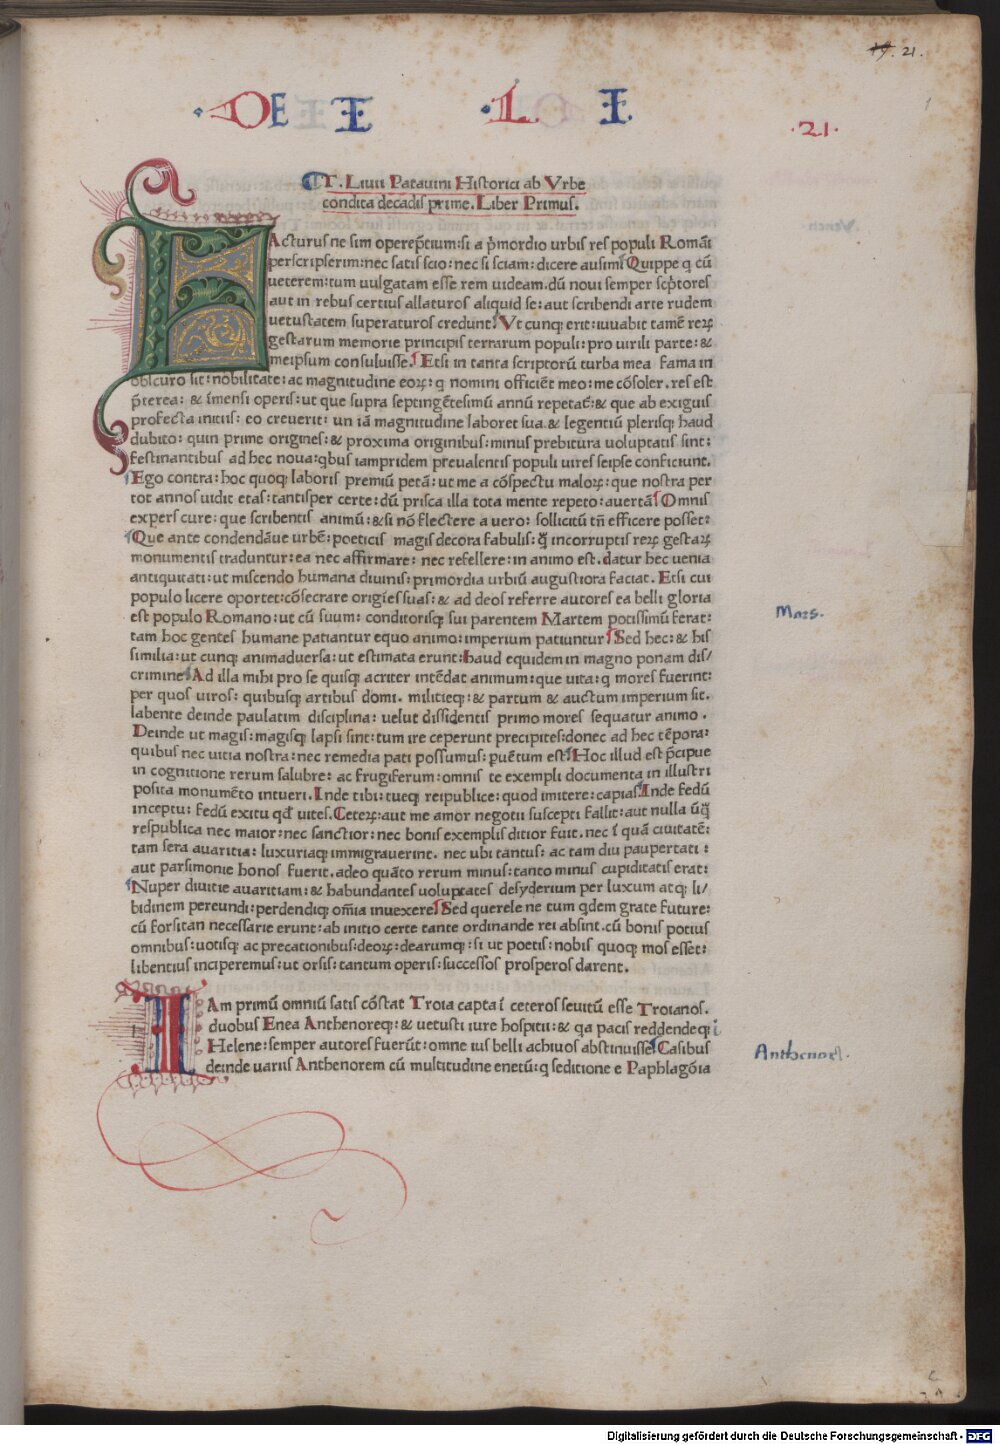 19. 21.
1
DE I L I
.21.
T. Liuii Patauini Historici ab Vrbe
condita decadis prime. Liber Primus.
FActurus ne sim opereprẽtium: si a p̃mordio urbis res populi Romãi
perscripserim: nec satis scio: nec si sciam: dicere ausim: Quippe q cũ
ueterem: tum uulgatam esse rem uideam. dũ noui semper scp̃tores
aut in rebus certius allaturos aliquid se: aut scribendi arte rudem
uetustatem superaturos credunt. Vt cunq; erit: iuuabit tamẽ reꝝ
gestarum memorie principis terrarum populi: pro uirili parte: &
meipsum consuluisse. Etsi in tanta scriptorũ turba mea fama in
obscuro sit: nobilitate: ac magnitudine eoꝝ: q nomini officiẽt meo: me cõsoler. res est
p̃terea: & ĩmensi operis: ut que supra septingẽtesimũ annũ repetat̃: & que ab exiguis
profecta initiis: eo creuerit: un iã magnitudine laboret sua. & legentiũ plerisq; haud
dubito: quin prime origines: & proxima originibus: minus prebitura uoluptatis sint:
festinantibus ad hec noua: qbus iampridem preualentis populi uires seipse conficiunt.
Ego contra: hoc quoq; laboris premiũ petã: ut me a cõspectu maloꝝ: que nostra per
tot annos uidit etas: tantisper certe: dũ prisca illa tota mente repeto: auertã. Omnis
expers cure: que scribentis animũ: & si nõ flectere a uero: sollicitũ tñ efficere posset:
Que ante condendãue urbẽ: poeticis magis decora fabulis: ꝙ̃ incorruptis reꝝ gestaꝝ
monumentis traduntur: ea nec affirmare: nec refellere: in animo est. datur hec uenia
antiquitati: ut miscendo humana diuinis: primordia urbiũ augustiora faciat. Etsi cui
populo licere oportet: cõsecrare origĩes suas: & ad deos referre autores ea belli gloria
est populo Romano: ut cũ suum: conditorisq; sui parentem Martem potissimũ ferat:
tam hoc gentes humane patiantur equo animo: imperium patiuntur. Sed hec: & his
similia: ut cunq; animaduersa: ut estimata erunt: haud equidem in magno ponam dis/
crimine. Ad illa mihi pro se quisq; acriter intẽdat animum: que uita: q mores fuerint:
per quos uiros: quibusq; artibus domi. militieq;: & partum & auctum imperium sit.
labente deinde paulatim disciplina: uelut dissidentis primo mores sequatur animo.
Deinde ut magis: magisq; lapsi sint: tum ire ceperunt precipites: donec ad hec tẽpora:
quibus nec uitia nostra: nec remedia pati possumus: puẽtum est. Hoc illud est p̃cipue
in cognitione rerum salubre: ac frugiferum: omnis te exempli documenta in illustri
posita monumẽto intueri. Inde tibi: tueq; reipublice: quod imitere: capias. Inde fedũ
inceptu: fedũ exitu qđ uites. Ceteꝝ: aut me amor negotii suscepti fallit: aut nulla ũq̃
respublica nec maior: nec sanctior: nec bonis exemplis ditior fuit. nec ĩ quã ciuitatẽ:
tam sera auaritia: luxuriaq; immigrauerint. nec ubi tantus: ac tam diu paupertati:
aut parsimonie honos fuerit. adeo quãto rerum minus: tanto minus cupiditatis erat:
Nuper diuitie auaritiam: & habundantes uoluptates desyderium per luxum atq; li/
bidinem pereundi: perdendiq; om̃ia inuexere. Sed querele ne tum qdem grate future:
cũ forsitan necessarie erunt: ab initio certe tante ordinande rei absint. cũ bonis potius
omnibus: uotisq; ac precationibus: deoꝝ: dearumq;: si ut poetis: nobis quoq; mos esset:
libentius inciperemus: ut orsis: tantum operis: successos prosperos darent.
IAm primũ omniũ satis cõstat Troia capta ĩ ceteros seuitũ esse Troianos.
duobus Enea Anthenoreq;: & uetusti iure hospitii: & qa pacis reddendeq;
Helene: semper autores fuerũt: omne ius belli achiuos abstinuisse. Casibus
deinde uariis Anthenorem cũ multitudine enetũ: q seditione e Paphlagõia
Mars.
Anthenores.
Digitalisierung gefördert durch die Deutsche Forschungsgemeinschaft - DFG